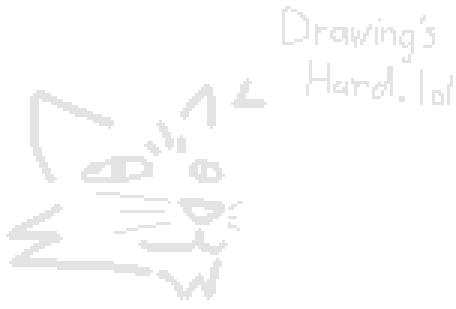 Drawing's
Hard. lol